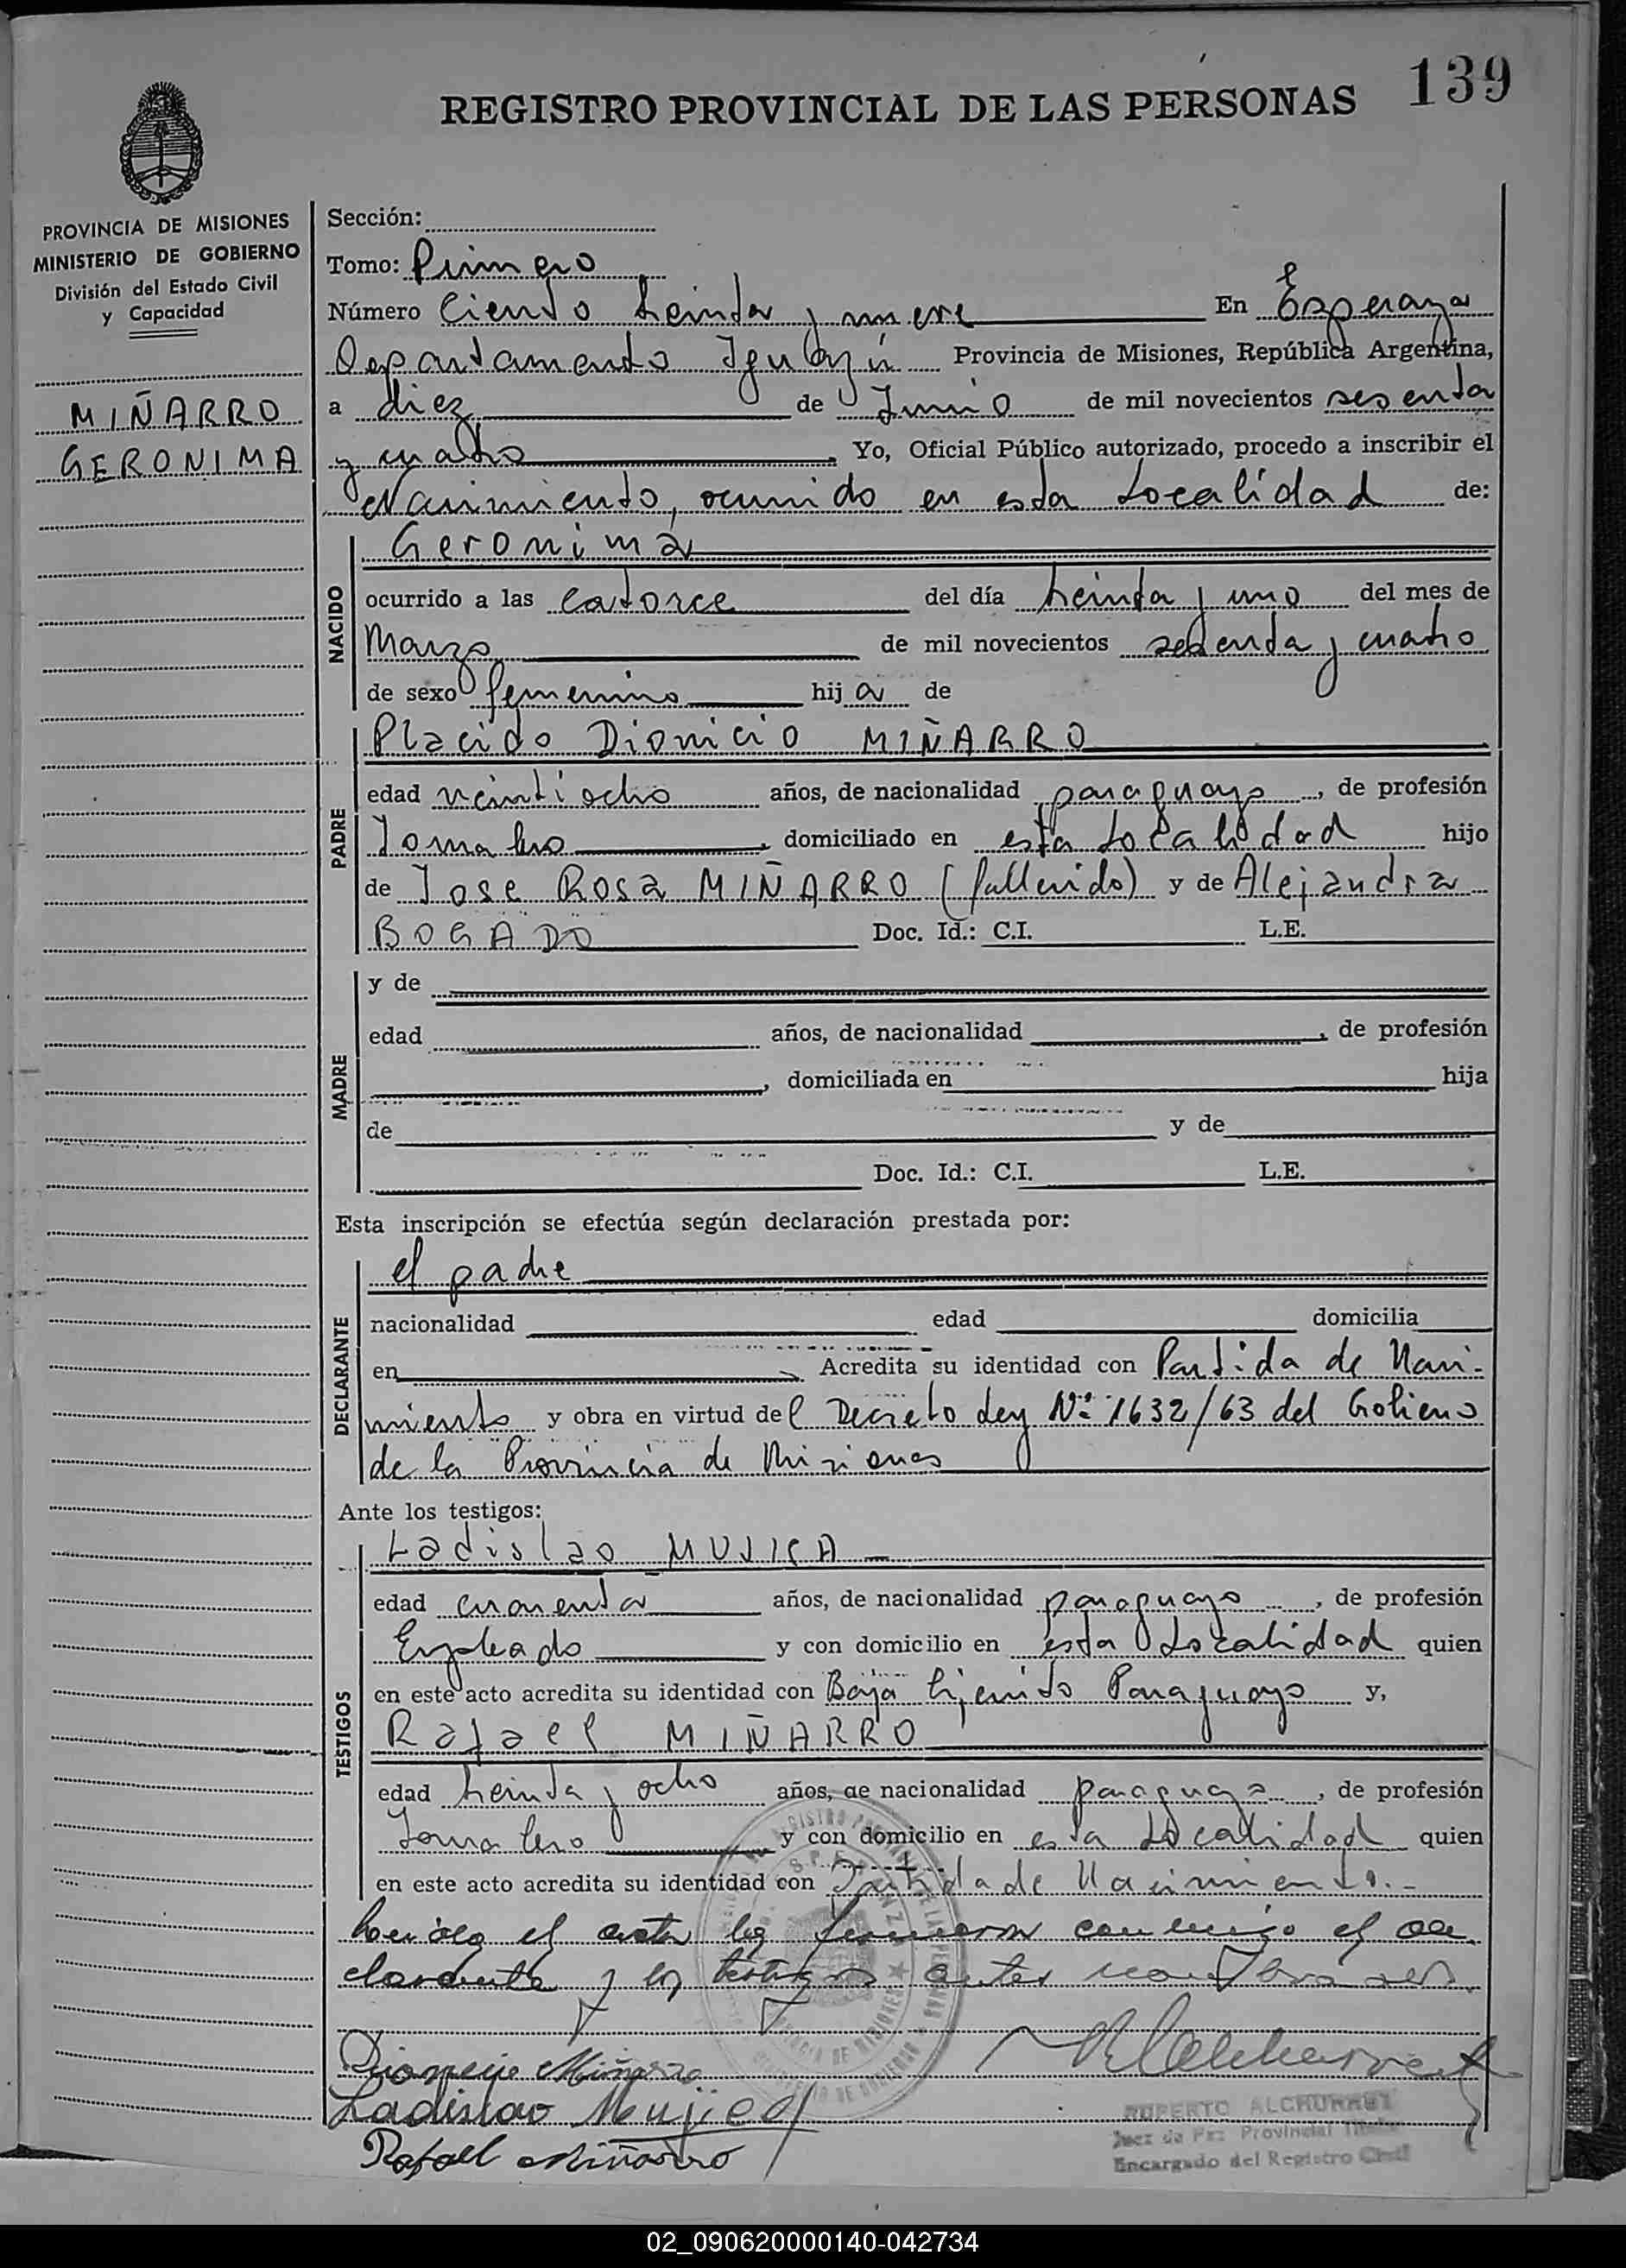 139
REGISTRO PROVINCIAL DE LAS PERSONAS
PROVINCIA DE MISIONES
MINISTERIO DE GOBIERNO
División del Estado Civil
y Capacidad
MIÑARRO
GERONIMA
Sección:
Tomo: Primero
Número Ciento treinta y nueve En Esperanza
Departamento Iguazú Provincia de Misiones, República Argentina,
a diez de Junio de mil novecientos sesenta
y cuatro Yo, Oficial Público autorizado, procedo a inscribir el
Nacimiento, ocurrido en esta Localidad de:
NACIDO
Geronima
ocurrido a las catorce del día treinta y uno del mes de
Marzo de mil novecientos sesenta y cuatro
de sexo femenino hija de
PADRE
Placido Dionicio MIÑARRO
edad veintiocho años, de nacionalidad paraguayo, de profesión
Jornalero, domiciliado en esta Localidad hijo
de Jose Rosa MIÑARRO (fallecido) y de Alejandra
BOGADO Doc. Id.: C.I. L.E.
MADRE
y de
edad años, de nacionalidad , de profesión
, domiciliada en hija
de y de
Doc. Id.: C.I. L.E.
Esta inscripción se efectúa según declaración prestada por:
DECLARANTE
el padre
nacionalidad edad domicilia
en Acredita su identidad con Partida de Naci-
miento y obra en virtud del Decreto Ley Nº 1632/63 del Gobierno
de la Provincia de Misiones
Ante los testigos:
TESTIGOS
Ladislao MUJICA
edad cuarenta años, de nacionalidad paraguayo, de profesión
Empleado y con domicilio en esta Localidad quien
en este acto acredita su identidad con Baja Ejercito Paraguayo y,
Rafael MIÑARRO
edad treinta y ocho años, de nacionalidad paraguaya, de profesión
Jornalero y con domicilio en esta Localidad quien
en este acto acredita su identidad con Partida de Nacimiento.-
el acta conmigo el de
clarante y los testigos antes
Dionicio Miñarro
Ladislao Mujica
Rafael Miñarro
RUPERTO ALCHURRUT
Juez de Paz Provincial Titular
Encargado del Registro Civil
02_090620000140-042734